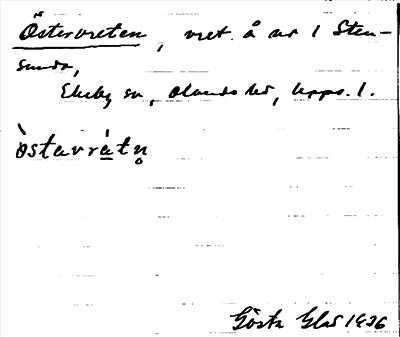 Östervreten, vret å nr 1 Sten-
sunda,
Ekeby sn, Olands hd, Upps. l.
òstavrátn̥
Gösta Glas 1936